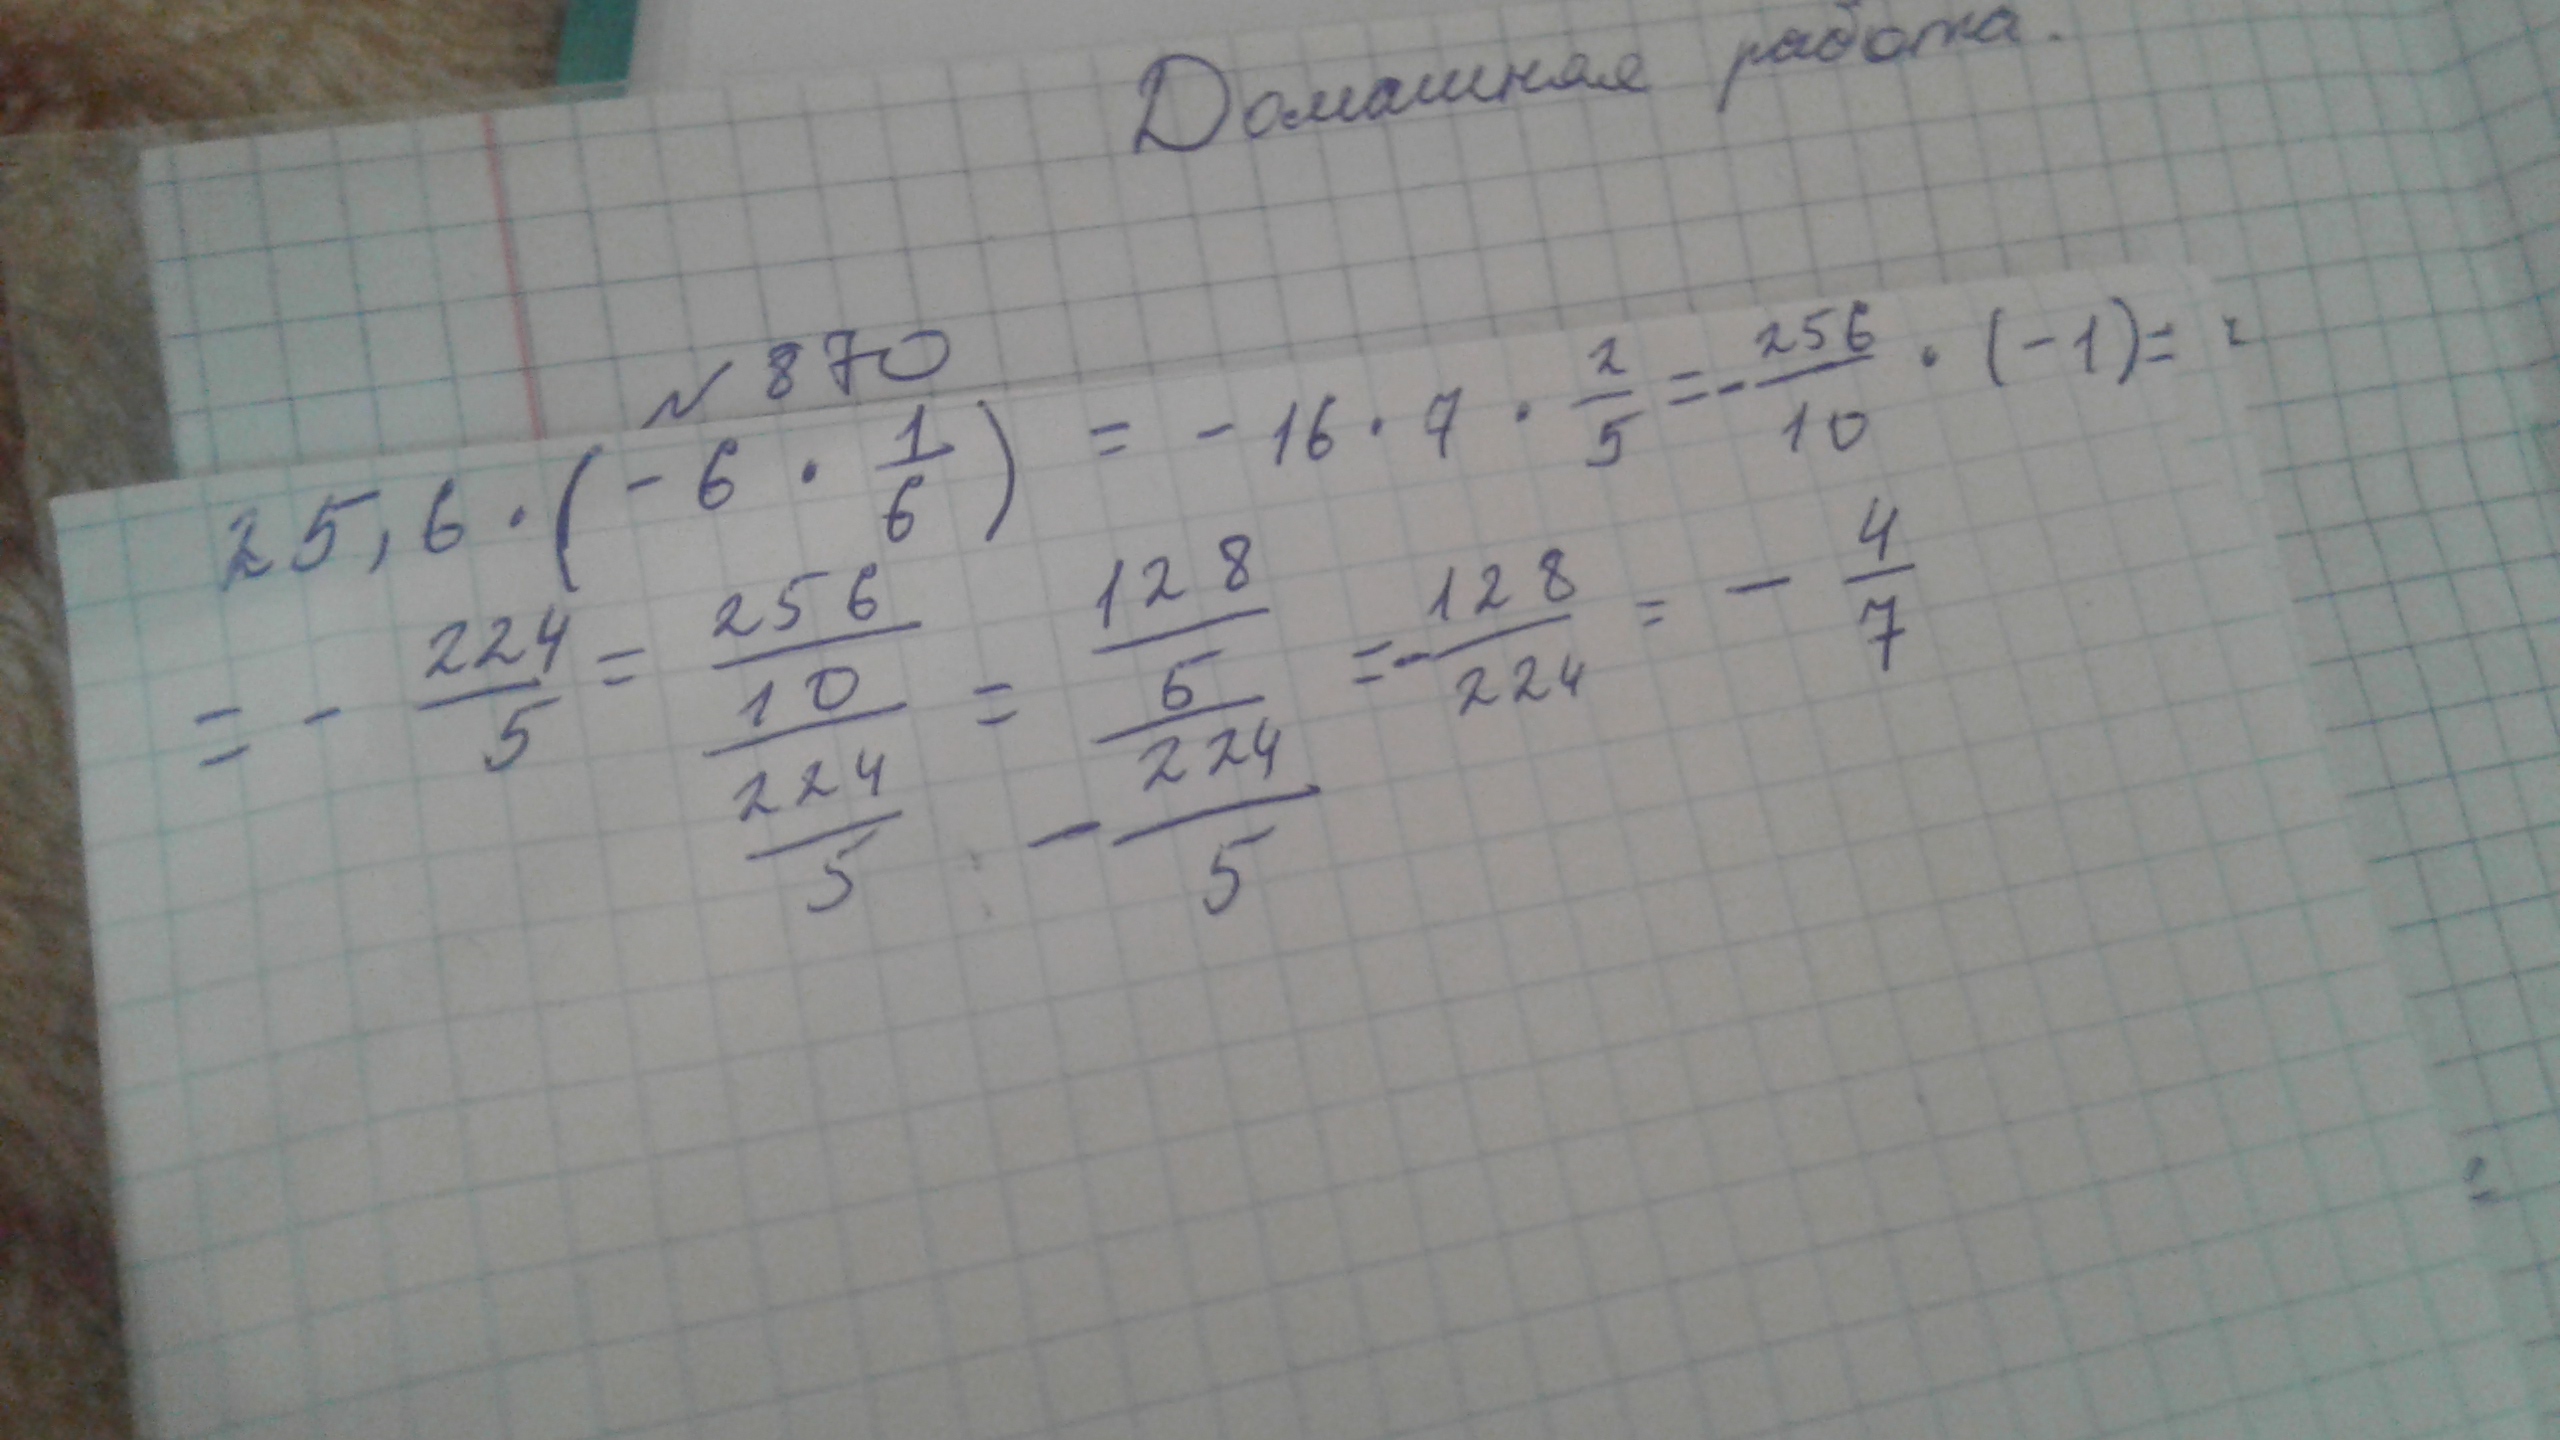 Домашняя работа.
№ 870
25,6 · (-6 · 1/6) = -16 · 7 · 2/5 = - 256/10 · (-1) =
= - 224/5 = 256/10/224/5 = 128/5/-224/5 = - 128/224 = - 4/7